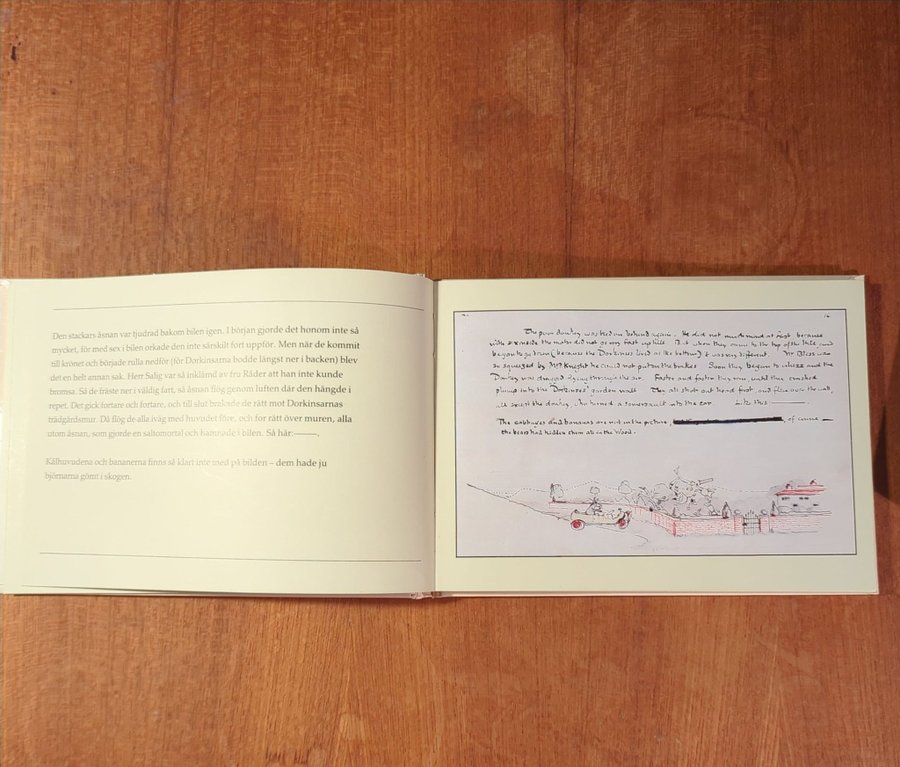 Den stackars åsnan var tjudrad bakom bilen igen. I början gjorde det honom inte så
mycket, för med sex i bilen orkade den inte särskilt fort uppför. Men när de kommit
till krönet och började rulla nedför (för Dorkinsarna bodde längst ner i backen) blev
det en helt annan sak. Herr Salig var så inklämd av fru Räder att han inte kunde
bromsa. Så de fräste ner i väldig fart, så åsnan flög genom luften där den hängde i
repet. Det gick fortare och fortare, och till slut brakade de rätt mot Dorkinsarnas
trädgårdsmur. Då flög de alla iväg med huvudet före, och for rätt över muren, alla
utom åsnan, som gjorde en saltomortal och hamnade i bilen. Så här:——,
Kålhuvudena och bananerna finns så klart inte med på bilden – dem hade ju
björnarna gömt i skogen.
The poor donkey was tied on behind again. He did not much mind at first because
with six inside the motor did not go very fast uphill. But when they came to the top of the hill and
began to go down (because the Dorkinses lived at the bottom) it was very different. Mr Bliss was
so squeezed by Mrs Knight he could not put on the brakes. Soon they began to whizz and the
Donkey was dragged flying through the air. Faster and faster they ran until they crashed
plump into the Dorkinses' garden wall. They all shot out head first and flew over the wall,
all except the donkey, who turned a somersault into the car. Like this ——.
The cabbages and bananas are not in the picture, , of course —
the bears had hidden them all in the Wood.